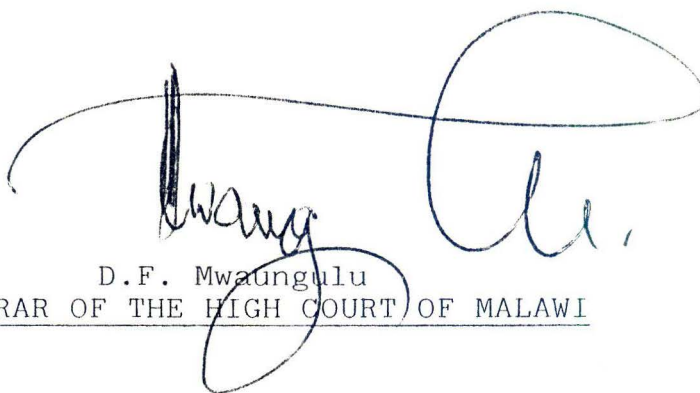 D.F. Mwaungulu
RAR OF THE HIGH COURT OF MALAWI